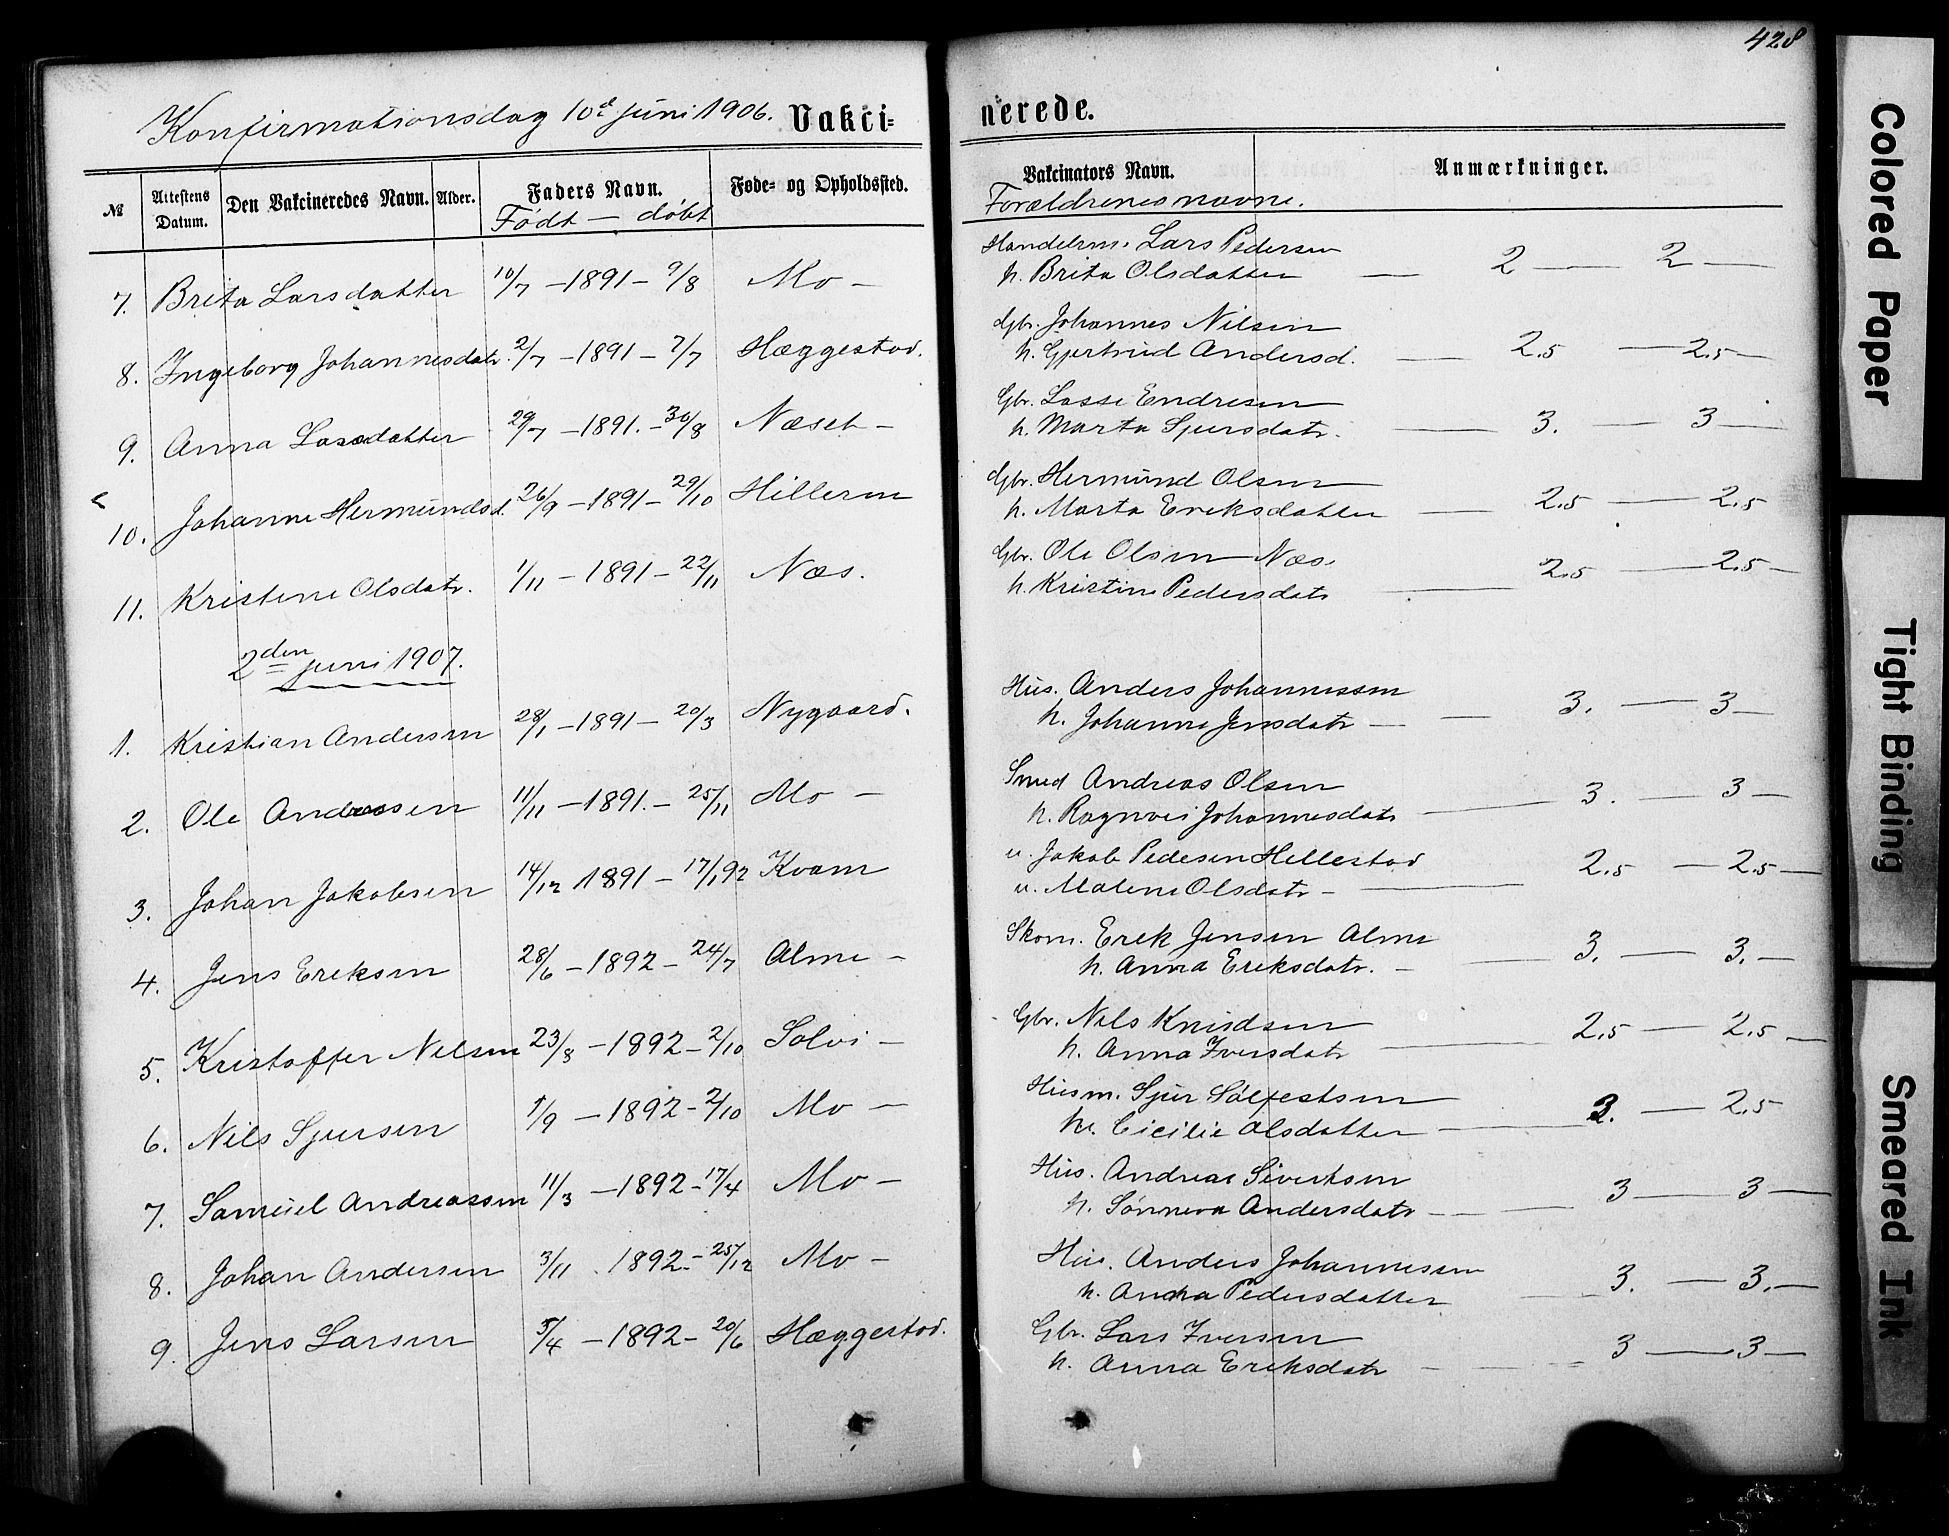 428
Konfirmationsdag 10d juni 1906. Vakci= nerede.
№ Attestens Datum. Den Vakcineredes Navn. Alder. Faders Navn. Føde= og Opholdssted. Vakcinators Navn. Anmærkninger.
Født — døbt Forældrenes navne.
7. Brita Larsdatter 10/7 – 1891 – 9/8 Mo – Handelsm. Lars Pedersen 2 — 2 —
h. Brita Olsdatter —
8. Ingeborg Johannesdatr. 2/7 – 1891 – 7/7 Hæggestad. Gbr. Johannes Nilsen
h. Gjertrud Andersd. — 2.5 — 2.5 —
9. Anna Lassedatter 29/7 – 1891. – 30/8 Næset – Gbr. Lasse Endresen
h. Marta Sjursdatr. — 3. — 3 —
10. Johanne Hermundsd. 26/9 – 1891 – 29/10 Hilleren Gbr. Hermund Olsen
h. Marta Eriksdatter — 2.5 — 2.5
11. Kristine Olsdatr. 1/11 – 1891 – 22/11 Næs. Gbr. Ole Olsen Næs.
h. Kristine Pedersdatr — 2.5 — 2.5 —
2den juni 1907.
1. Kristian Andersen 28/1 – 1891 – 20/3 Nygaard. Hus. Anders Johannessen
h. Johanne Jensdatr — 3. — 3 —
2. Ole Andreassen 11/11 – 1891. – 25/11 Mo – Smed Andreas Olsen
h. Ragnvei Johannesdatr — 3. — 3 —
3. Johan Jakobsen 14/12 1891 – 17/1 92 Kvam u. Jakob Pedesen Hellestad
u. Malene Olsdatr — 2.5 — 2.5 —
4. Jens Eriksen 28/6 – 1892 – 24/7 Alme – Skom. Erik Jensen Alme
h. Anna Eriksdatr. — 3. — 3. —
5. Kristoffer Nilsen 23/8 – 1892 – 2/10 Solvi – Gbr. Nils Knudsen
h. Anna Iversdatr — 2.5 — 2.5 —
6. Nils Sjursen 1/9 – 1892 – 2/10 Mo – Husm. Sjur Sølfestsen
h. Cicilie Olsdatter — 3. — 2.5
7. Samuel Andreassen 11/3 – 1892 – 17/4 Mo – Hus. Andreas Sivertsen
h. Sønneva Andersdatr — 3 — 3 —
8. Johan Andersen 3/11 . 1892. – 25/12 Mo – Hus. Anders Johannessen
h. Anna Pedersdatter — 3. — 3. —
9. Jens Larsen 5/4 – 1892 – 20/6 Hæggestad. Gbr. Lars Iversen
h. Anna Eriksdatr — 3 — 3 —
Colored Paper
Tight Binding
Smeared Ink